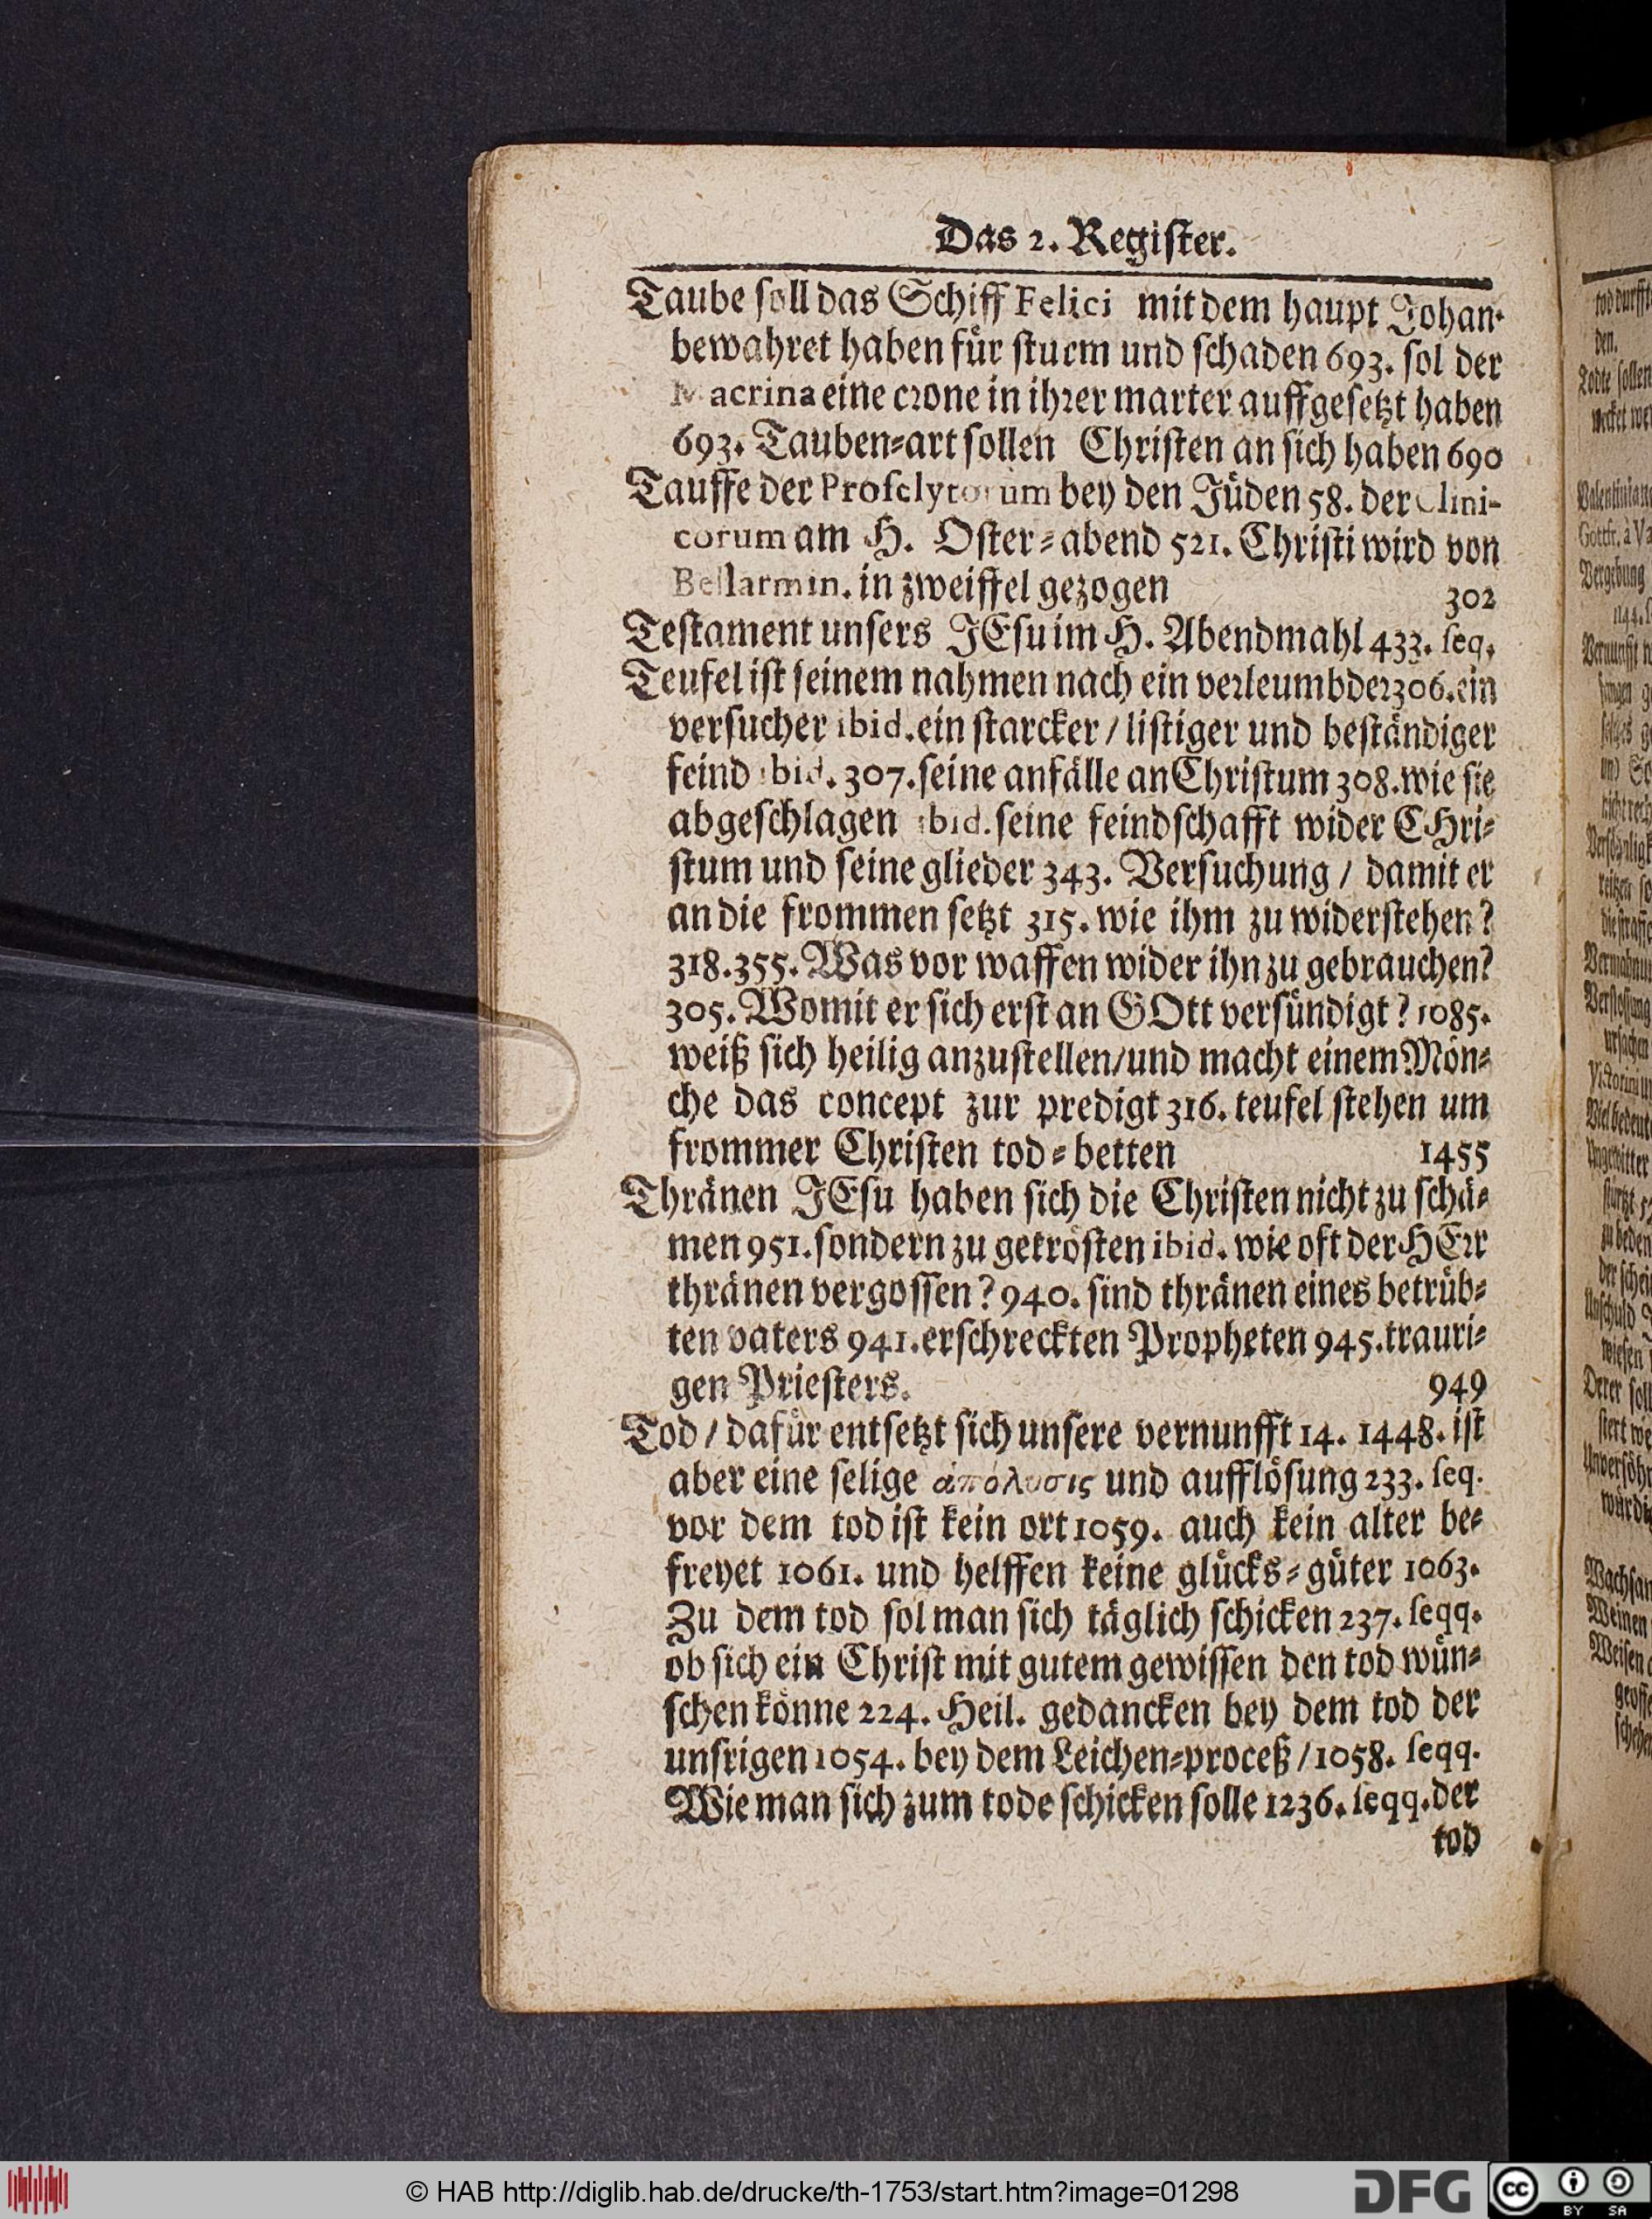 Das 2. Regiſter.
Taube ſoll das Schiff Felici mit dem haupt Johan.
bewahret haben fuͤr ſturm und ſchaden 693. ſol der
Macrina eine crone in ihrer marter auffgeſetzt haben
693. Tauben⸗art ſollen Chriſten an ſich haben 690
Tauffe der Proſelytorum bey den Juͤden 58. der Clini-
corum am H. Oſter⸗abend 521. Chriſti wird von
Bellarmin. in zweiffel gezogen 302
Teſtament unſers JEſu im H. Abendmahl 433. ſeq.
Teufel iſt ſeinem nahmen nach ein verleumbder 306. ein
verſucher ibid. ein ſtarcker / liſtiger und beſtaͤndiger
feind ibid. 307. ſeine anfaͤlle an Chriſtum 308. wie ſie
abgeſchlagen ibid. ſeine feindſchafft wider CHri⸗
ſtum und ſeine glieder 343. Verſuchung / damit er
an die frommen ſetzt 315. wie ihm zu widerſtehen?
318. 355. Was vor waffen wider ihn zu gebrauchen?
305. Womit er ſich erſt an GOtt verſuͤndigt? 1085.
weiß ſich heilig anzuſtellen / und macht einem Moͤn⸗
che das concept zur predigt 316. teufel ſtehen um
frommer Chriſten tod⸗betten 1455
Thraͤnen JEſu haben ſich die Chriſten nicht zu ſchaͤ⸗
men 951. ſondern zu getroͤſten ibid. wie oft der HErr
thraͤnen vergoſſen? 940. ſind thraͤnen eines betruͤb⸗
ten vaters 941. erſchreckten Propheten 945. trauri⸗
gen Prieſters. 949
Tod / dafuͤr entſetzt ſich unſere vernunfft 14. 1448. iſt
aber eine ſelige ἀπόλυσις und auffloͤſung 233. ſeq.
vor dem tod iſt kein ort 1059. auch kein alter be⸗
freyet 1061. und helffen keine gluͤcks⸗guͤter 1063.
Zu dem tod ſol man ſich taͤglich ſchicken 237. ſeqq.
ob ſich ein Chriſt mit gutem gewiſſen den tod wuͤn⸗
ſchen koͤnne 224. Heil. gedancken bey dem tod der
unſrigen 1054. bey dem Leichen⸗proceß / 1058. ſeqq.
Wie man ſich zum tode ſchicken ſolle 1236. ſeqq. der
tod
© HAB http://diglib.hab.de/drucke/th-1753/start.htm?image=01298
DFG
cc BY SA